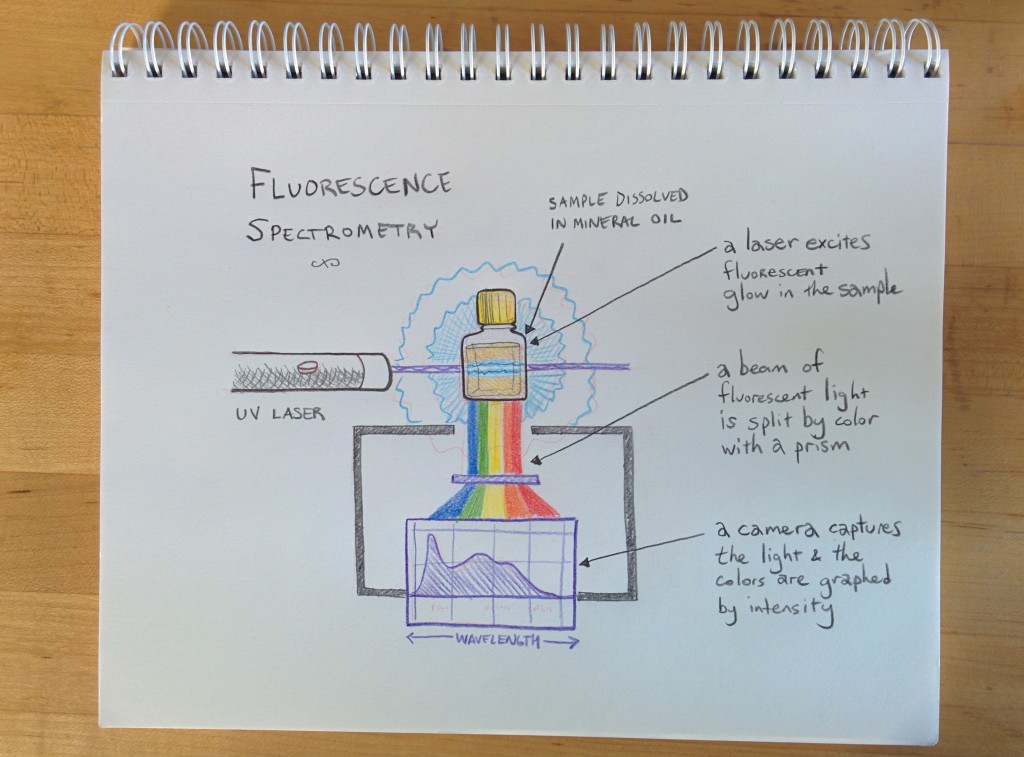 FLUORESCENCE
SPECTROMETRY
SAMPLE DISSOLVED
IN MINERAL OIL
a laser excites
fluorescent
glow in the sample
UV LASER
a beam of
fluorescent light
is split by color
with a prism
a camera captures
the light & the
colors are graphed
by intensity
WAVELENGTH